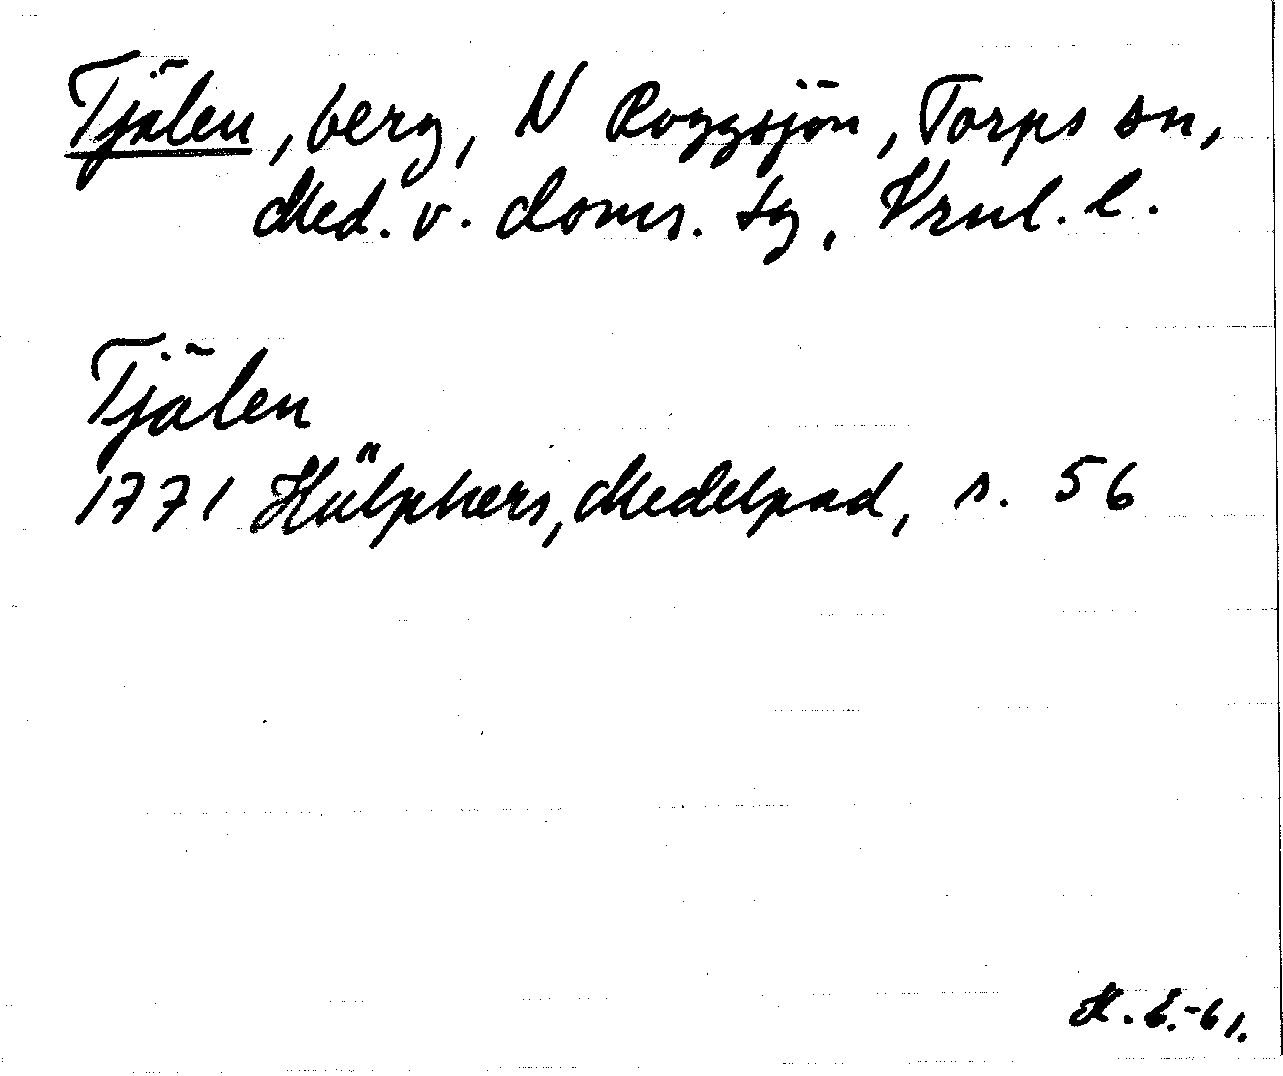 Tjälen, berg, N Roggsjön, Torps sn,
Med. v. doms. sg, Vrnl. l.
Tjälen
1771 Hülphers, Medelpad, s. 56
M. E.-61.